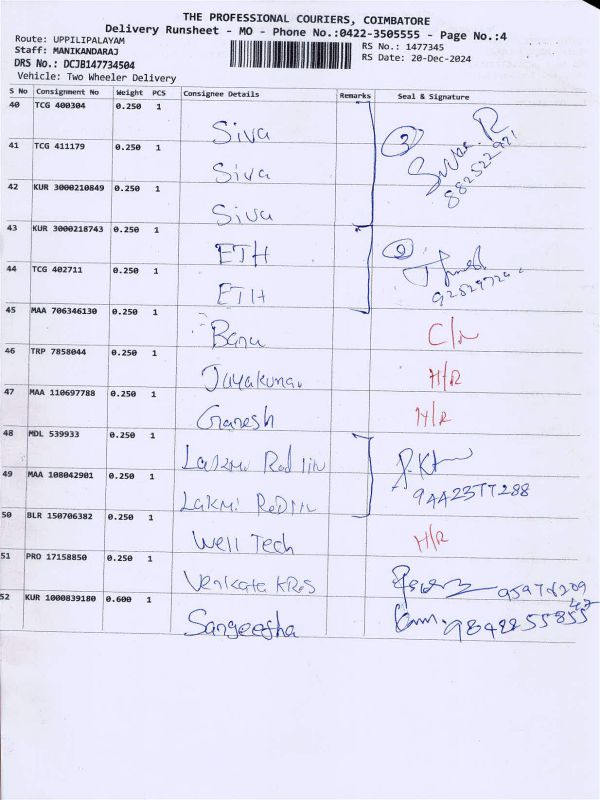 THE PROFESSIONAL COURIERS, COIMBATORE
Delivery Runsheet - MO - Phone No.:0422-3505555 - Page No.:4
Route: UPPILIPALAYAM
Staff: MANIKANDARAJ
DRS No.: DCJB147734504
Vehicle: Two Wheeler Delivery
RS No.: 1477345
RS Date: 20-Dec-2024
S No Consignment No Weight PCS Consignee Details Remarks Seal & Signature
40 TCG 400304 0.250 1 Siva
41 TCG 411179 0.250 1 Siva
3
42 KUR 3000210849 0.250 1 Siva
43 KUR 3000218743 0.250 1 ETH
44 TCG 402711 0.250 1 ETH
45 MAA 706346130 0.250 1 Banu
46 TRP 7858044 0.250 1 H/R
47 MAA 110697788 0.250 1 Ganesh H/R
48 MDL 539933 0.250 1
9442377288
49 MAA 108042901 0.250 1
50 BLR 150706382 0.250 1 Well Tech H/R
51 PRO 17158850 0.250 1 Venkata
52 KUR 1000839180 0.600 1 Sangeetha 9842255855